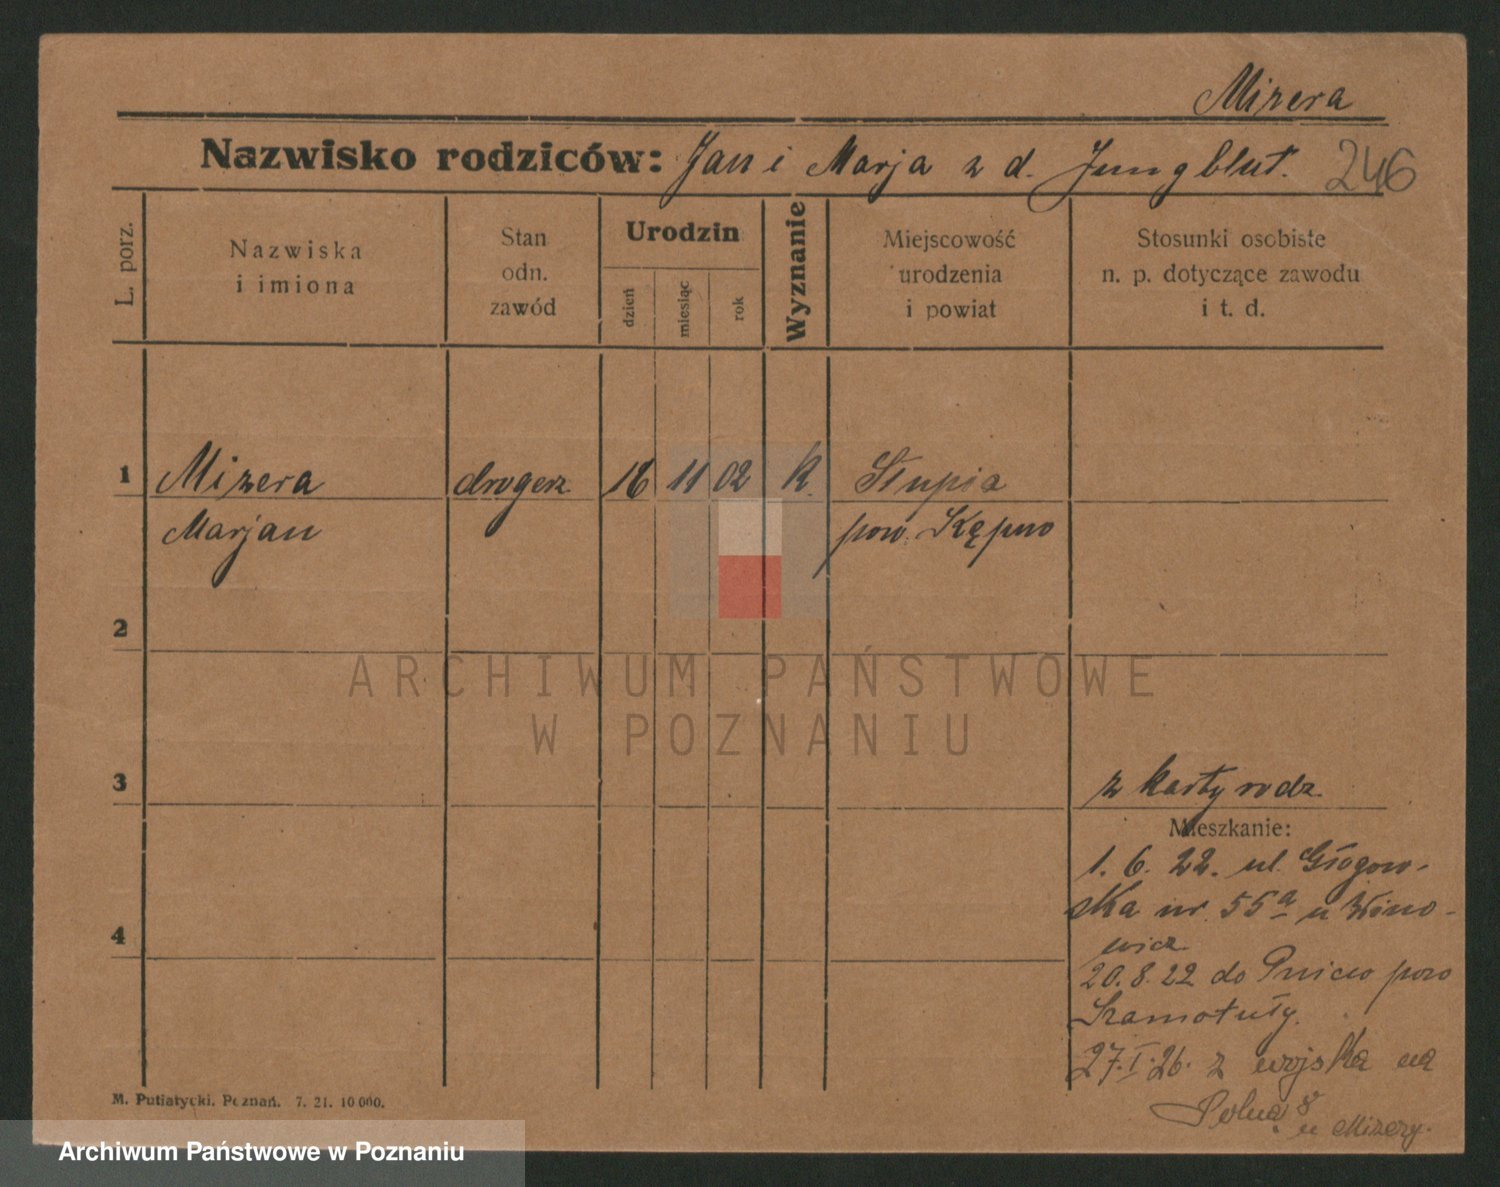 Mizera
Nazwisko rodziców: Jan i Marja z d. Jungblut.
246
L. porz.
Nazwiska
i imiona
Stan
odn.
zawód
Urodzin
dzień
miesiąc
rok
Wyznanie
Miejscowość
urodzenia
i powiat
Stosunki osobiste
n. p. dotyczące zawodu
i t. d.
1 Mizera drogerz 16 11 02 k. Słupia
Marjan pow. Kępno
2
ARCHIWUM PAŃSTWOWE
W POZNANIU
3
z karty rodz.
Mieszkanie:
1. 6. 22. ul. Głogow-
ska nr 55a u Wino-
wicz
4
20. 8. 22 do pow
Szamotuły.
27. I. 26. z wojska na
Polna 8
u Mizery.
M. Putiatycki. Poznań. 7. 21. 10 000.
Archiwum Państwowe w Poznaniu